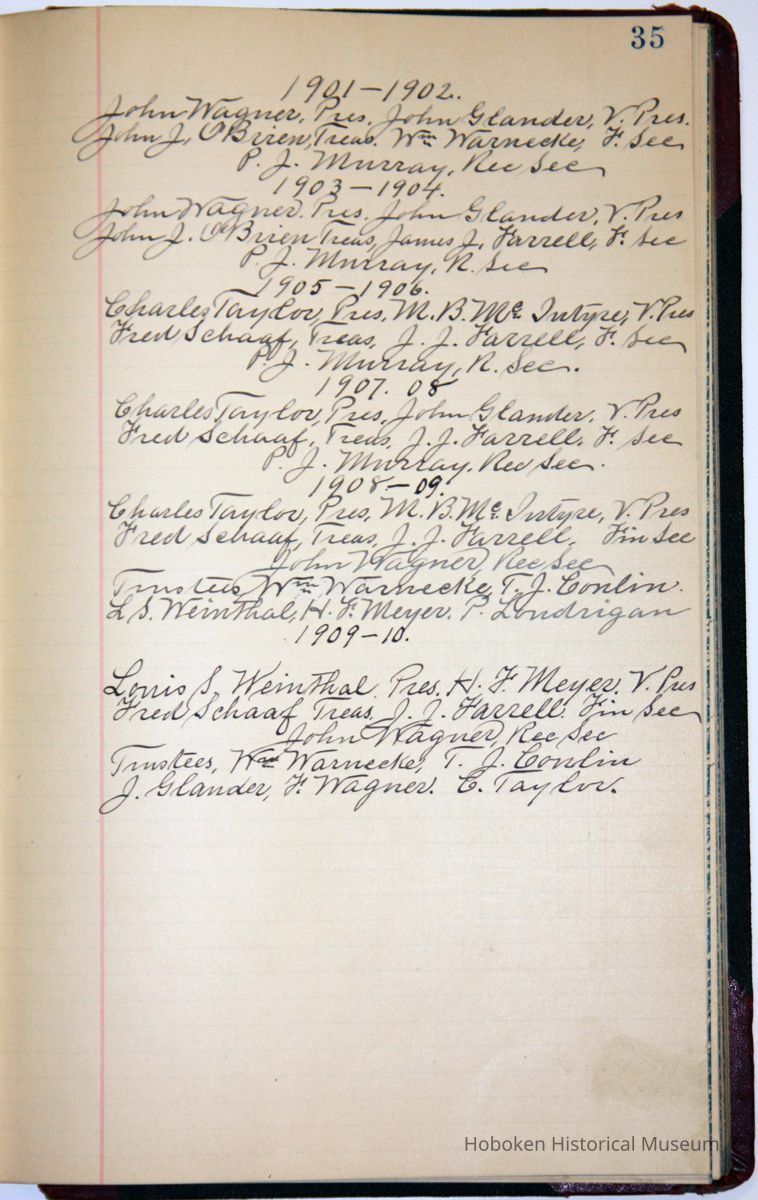 35
1901-1902.
John Wagner, Pres. John Glander, V. Pres.
John J. O'Brien, Treas. Wm Warnecke, F. Sec
P. J. Murray, Rec Sec
1903-1904.
John Wagner. Pres. John Glander, V. Pres
John J. O'Brien Treas, James J. Farrell, F. Sec
P. J. Murray, R. Sec
1905-1906.
Charles Taylor, Pres, M. B. Mc Intyre, V. Pres
Fred Schaaf, Treas, J. J. Farrell, F. Sec
P. J. Murray, R. Sec.
1907. 08
Charles Taylor, Pres, John Glander, V. Pres
Fred Schaaf, Treas, J. J. Farrell, F. Sec
P. J. Murray, Rec Sec.
1908-09.
Charles Taylor, Pres, M. B. Mc Intyre, V. Pres
Fred Schaaf, Treas, J. J. Farrell, Fin Sec
John Wagner, Rec Sec
Trustees, Wm Warnecke, T. J. Conlin.
L S. Weinthal, H. F. Meyer. P. Londrigan
1909-10.
Louis S. Weinthal, Pres. H. F. Meyer. V. Pres
Fred Schaaf Treas, J. J. Farrell. Fin Sec
John Wagner, Rec Sec
Trustees, Wm Warnecke, T. J. Conlin
J. Glander, F. Wagner. C. Taylor.
Hoboken Historical Museum